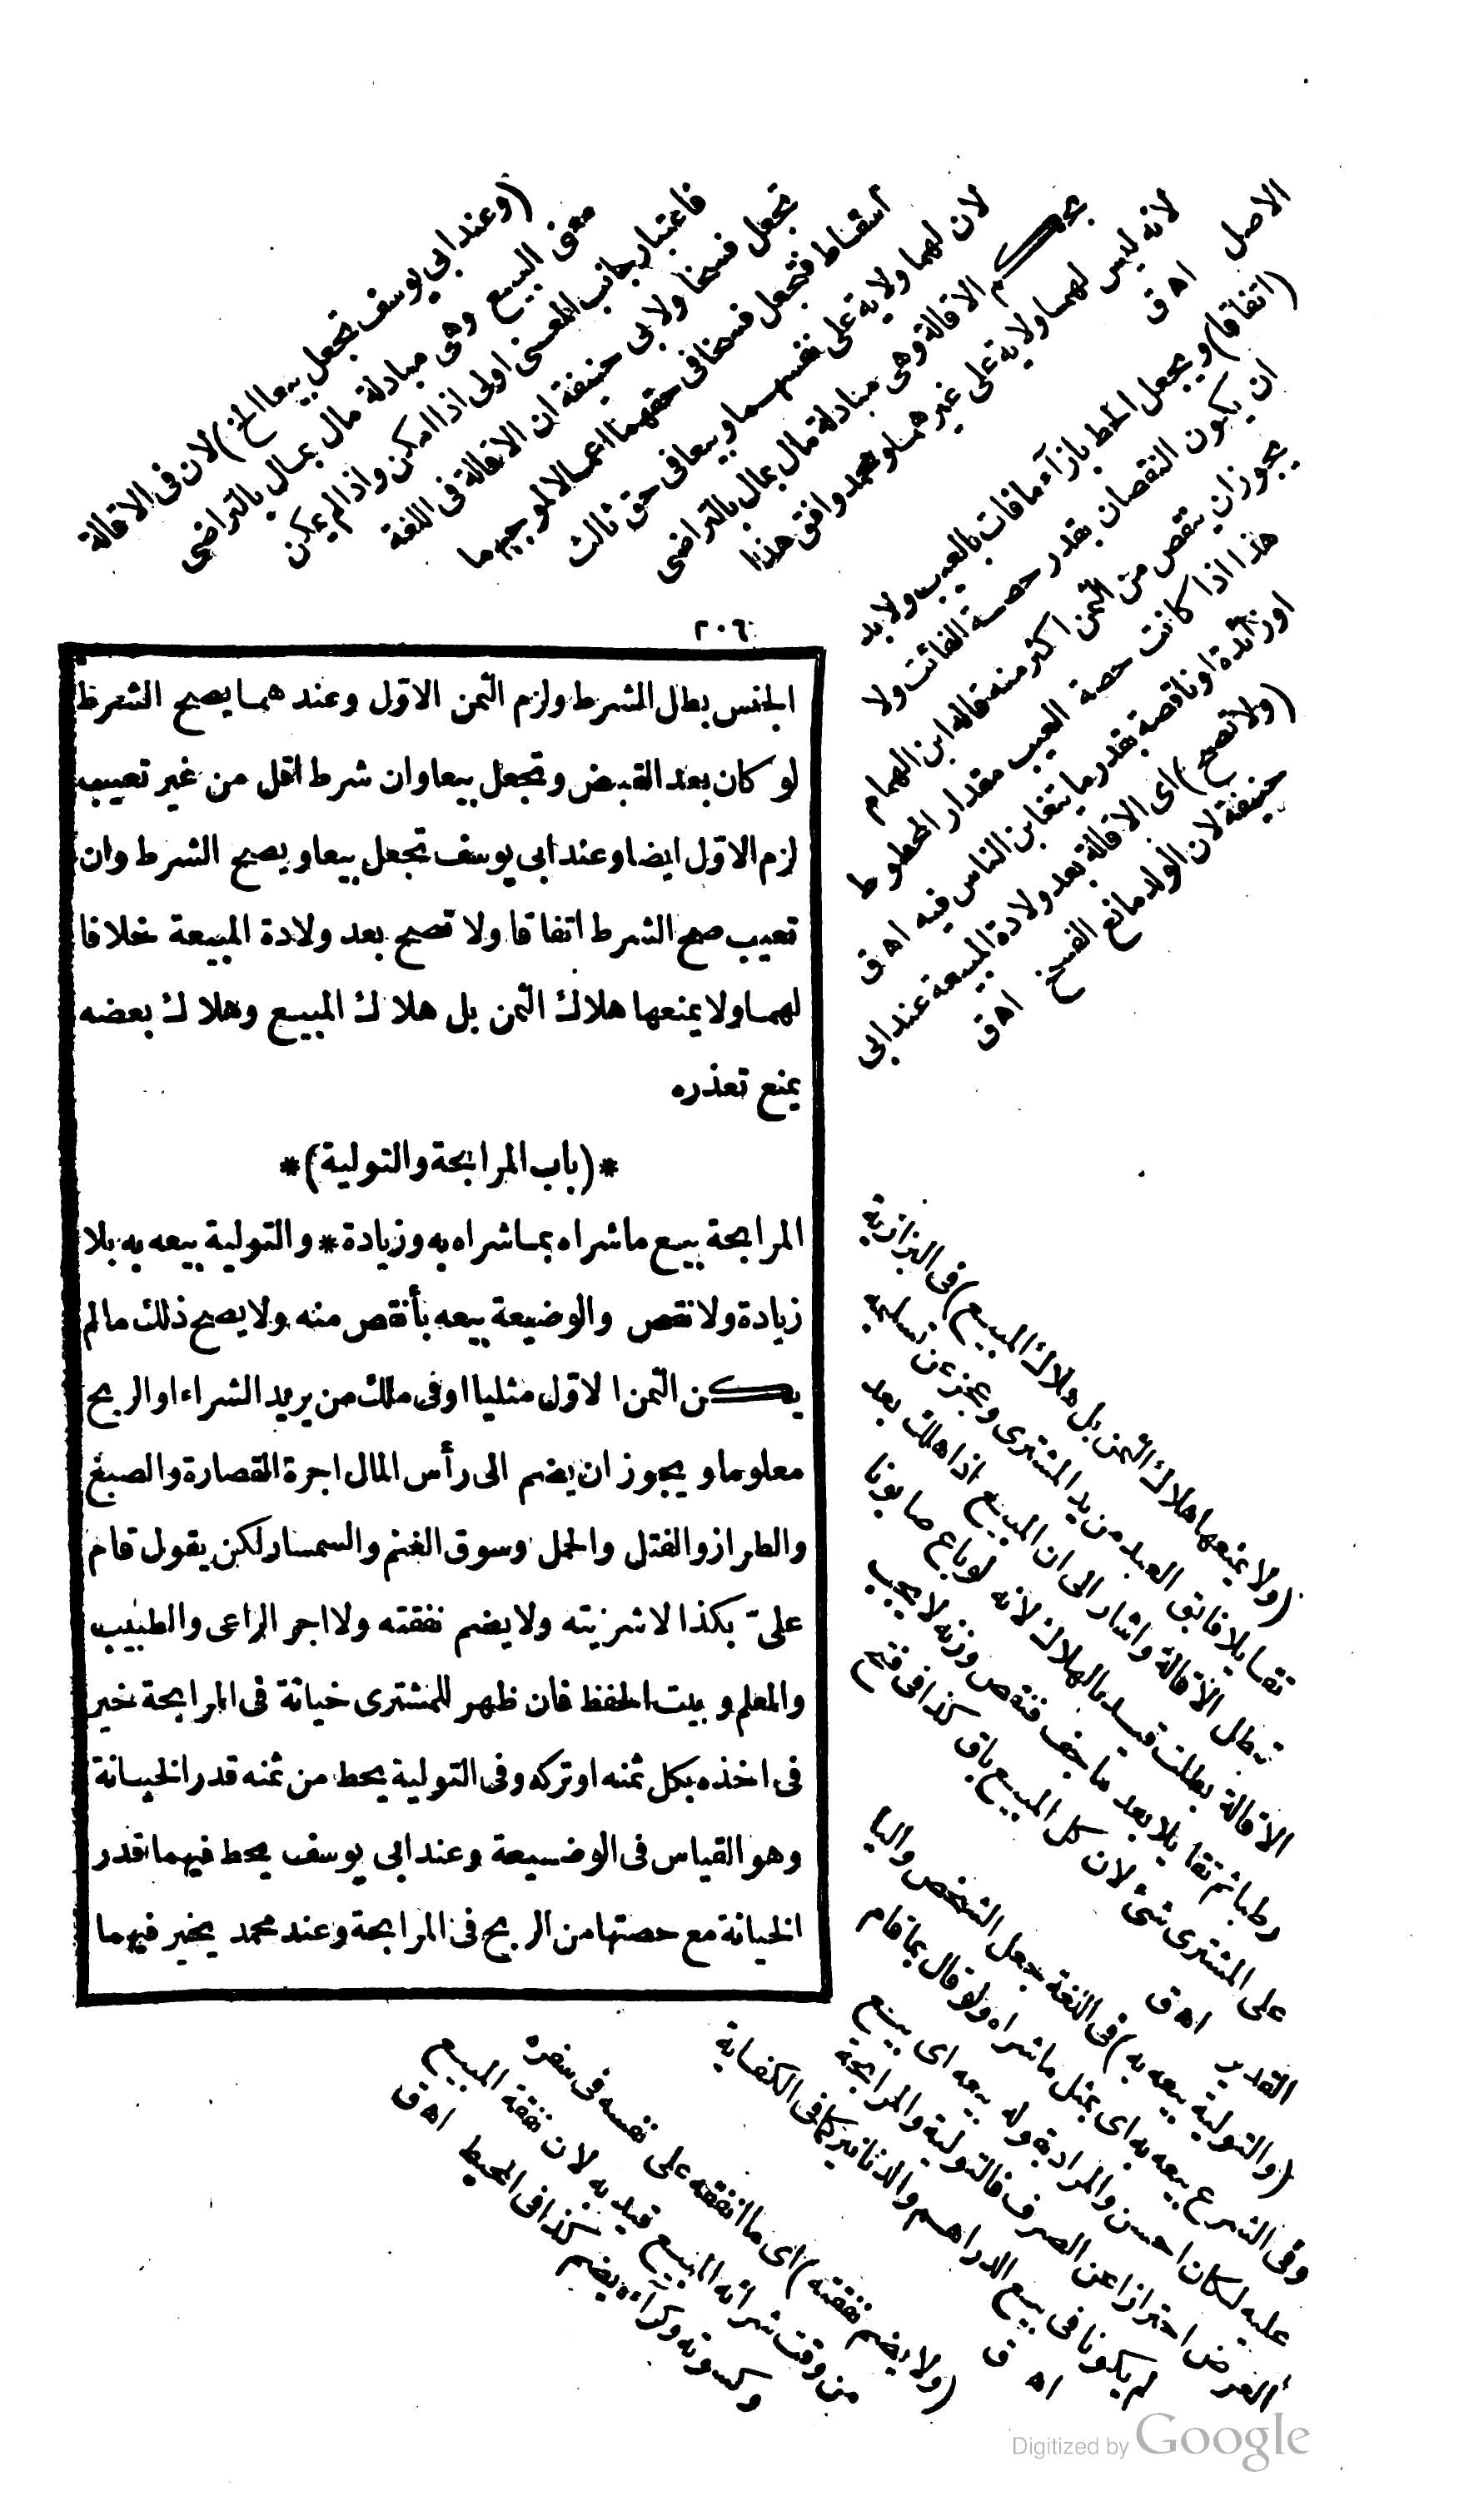 ٢٠٦
الجنس بطل الشرط ولزم الثمن الاوّل وعندهما يصح الشرط
لو كان بعد القبض وتجعل بيعا وان شرط اقل من غير تعييب
لزم الاوّل ايضا وعند ابى يوسف تجعل بيعا ويصح الشرط وان
تعيب صح الشرط اتفاقا ولا تصح بعد ولادة المبيعة خلافا
لهما ولا يمنعها هلاك الثمن بل هلاك المبيع وهلاك بعضه
يمنع تعذره
*(باب المرابحة والتولية)*
المرابحة بيع ماشراه بماشراه به وزيادة * والتولية بيعه به بلا
زيادة ولا نقص والوضيعة بيعه بأنقص منه ولا يصح ذلك مالم
يكن الثمن الاوّل مثليا اوفى ملك من يريد الشراء او الربح
معلوما و يجوز ان يضم الى رأس المال اجرة القصارة والصبغ
والطراز والفتل والحمل وسوق الغنم والسمسار لكن يقول قام
علىّ بكذا لا شريته ولا يضم نفقته ولا اجر الراعى والطبيب
والمعلم و بيت الحفظ فان ظهر للمشترى خيانة فى المرابحة خير
فى اخذه بكل ثمنه اوتركه وفى التولية يحط من ثمنه قدر الخيانة
وهو القياس فى الوضيعة وعند ابى يوسف يحط فيهما قدر
الخيانة مع حصتها من الربح فى المرابحة وعند محمد يخير فيهما
(وعند ابى يوسف تجعل بيعا الخ) لان فى الاقالة
معنى البيع وهى مبادلة مال بمال بالتراضى
فاعتبار جانب المعنى اولى اذا امكن واذا لم يمكن
تجعل فسخا ولابى حنيفة ان الاقالة فى اللغة
اسقاط فتجعل فسخا فى حقهما اعمالا لموجبهما
لان لهما ولاية على نفسهما وبيعا فى حق ثالث
الاقالة وهى مبادلة مال بمال بالتراضى
لانه ليس لهما ولاية على غيرهما
الاصل اه ق
(اتفاقا) ويجعل الحط بازاء مافات بالعيب ولابد
ان يكون النقصان بقدر حصة الفائت ولا
يجوز ان ينقص من الثمن اكثر منه قاله ابن الهمام
هذا اذا كانت حصة العيب مقدار المحطوط
او زائدة او ناقصة بقدر ما يتغابن الناس فيه اه ق
(ولا تصح) اى الاقالة بعد ولادة المبيعة عند ابى
حنيفة لان الولد مانع الفسخ اه ق
(ولا يمنعها هلاك الثمن بل هلاك المبيع) فى البزازية
تقايلا فابق العبد من يد المشترى وعجز عن تسليمه
بطل الاقالة واشار الى ان المبيع اذا هلك بعد
الاقالة بطلت قيد بالهلاك لانه لو باع صابونا
رطبا ثم تقايلا بعد ما جف فنقص وزنه لا يجب
على المشترى شئ لان كل المبيع باق كذا فى فتح
القدير اه ق
(والتولية بيعه به) فى اللغة جعل الشخص واليا
وفى الشرع بيعه به اى بمثل ماشراه ولو قال بما قام
عليه لكان احسن والمراد بقوله بيعه اى بيع
العرض احترازا عن الصرف فالتولية والمرابحة
لم يكونا فى بيع الدراهم والدنانير كما فى الكفاية
اه ق
(ولا يضم نفقته) اى ما انفقه على نفسه فى سفره
من وقت شرائه المبيع قيد به لان نفقة المبيع
وكسوته وكراءه يضم كذا فى المحيط اه ق
Digitized by Google